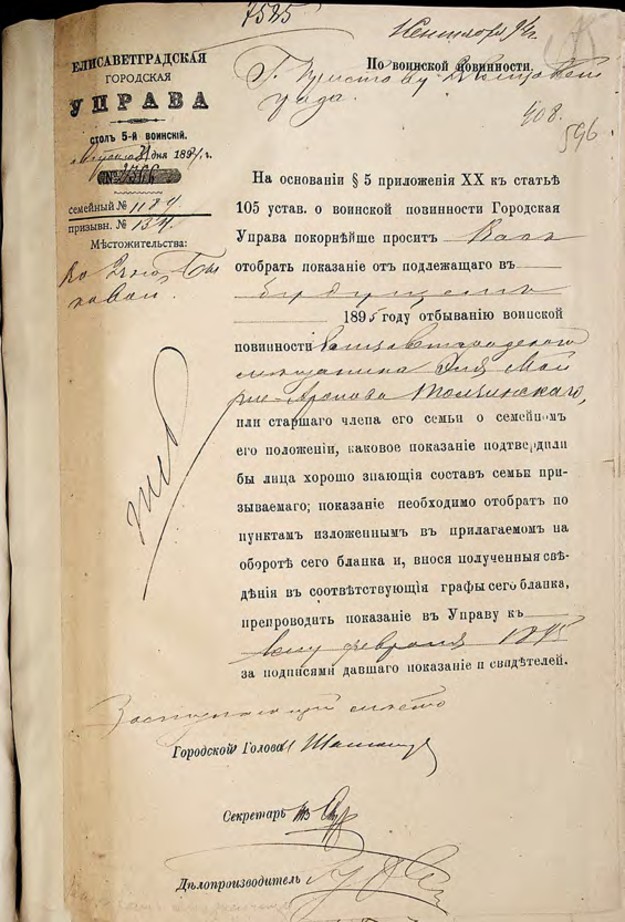 7525
Сентября 94 г.
ЕЛИСАВЕТГРАДСКАЯ
ГОРОДСКАЯ
УПРАВА
СТОЛЪ 5-й ВОИНСКІЙ.
дня 1894 г.
№
семейный № 1184
призывн. № 134
Мѣстожительства:
По воинской повинности.
Г. Приставу
града.
408.
596
На основаніи § 5 приложенія XX къ статьѣ
105 устав. о воинской повинности Городская
Управа покорнѣйше проситъ Васъ
отобрать показаніе отъ подлежащаго въ
будущемъ
1895 году отбыванію воинской
повинности Елисаветградскаго
мѣщанина
Аронова Толчинскаго,
или старшаго члена его семьи о семейномъ
его положеніи, каковое показаніе подтвердили
бы лица хорошо знающія составъ семьи при-
зываемаго; показаніе необходимо отобрать по
пунктамъ изложеннымъ въ прилагаемомъ на
оборотѣ сего бланка и, внося полученныя свѣ-
дѣнія въ соотвѣтствующія графы сего бланка,
препроводить показаніе въ Управу къ
февраля 1895
за подписями давшаго показаніе и свидѣтелей.
Заступающій мѣсто
Городской Головы
Секретарь
Дѣлопроизводитель